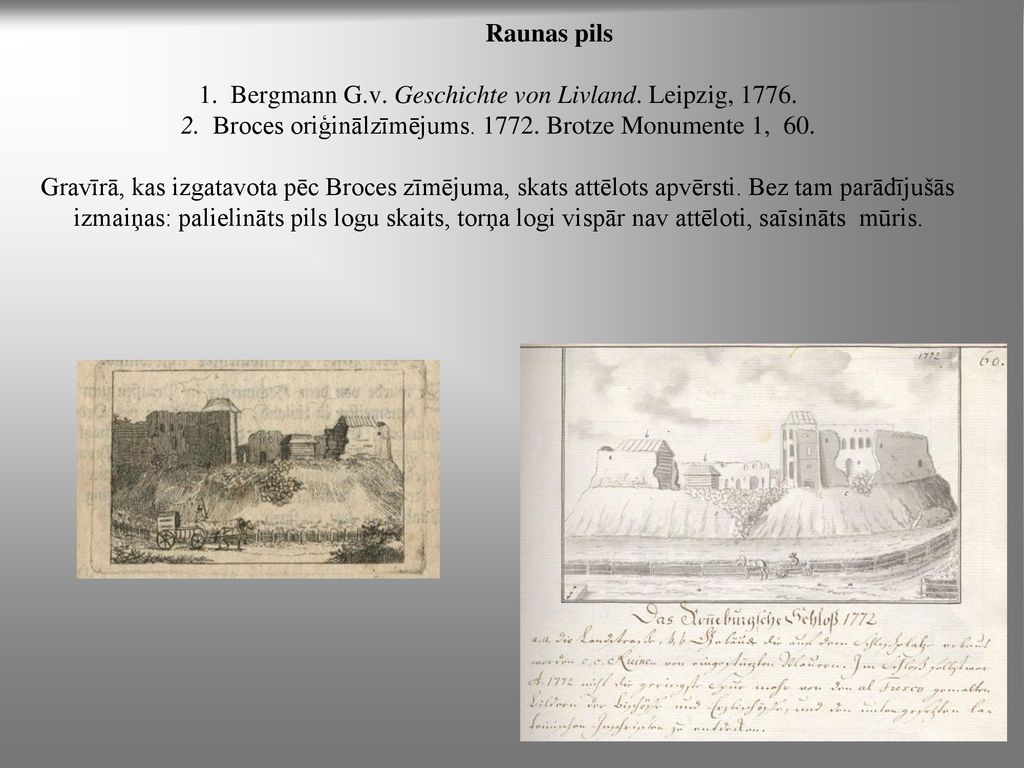 Raunas pils
1. Bergmann G.v. Geschichte von Livland. Leipzig, 1776.
2. Broces oriģinālzīmējums. 1772. Brotze Monumente 1, 60.
Gravīrā, kas izgatavota pēc Broces zīmējuma, skats attēlots apvērsti. Bez tam parādījušās
izmaiņas: palielināts pils logu skaits, torņa logi vispār nav attēloti, saīsināts mūris.
1772
60.
Das Roneburgsche Schloß 1772
a.a. die Landstrasse, b,b Gebäude die auf dem Schlossplatze erbaut
worden c,c. Ruinen von eingestürzten Mauern. Im Schloß selbst war
A. 1772 nicht die geringste Spur mehr von den al Fresco gemalten
Bildern der Bischöffe und Erzbischöffe, und den untergesetzten la-
teinischen Inschriften zu entdecken.